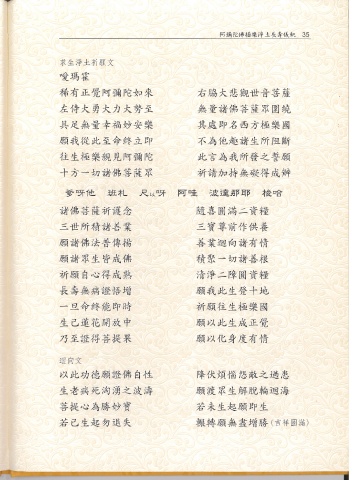 阿彌陀佛極樂淨土往生儀軌 35
眾生淨土祈願文
唉瑪霍
稀有正覺阿彌陀如來 右脇大悲觀世音菩薩
左侍大勇大力大勢至 無量諸佛菩薩眾圍繞
具足無量幸福妙安樂 其處即名西方極樂國
願我從此至命終立即 不為他趣諸生所阻斷
往生極樂親見阿彌陀 此言為我所發之誓願
十方一切諸佛菩薩眾 祈請加持無礙得成辦
爹呀他 班札 只呀 阿哇 波達那耶 梭哈
諸佛菩薩祈護念 隨喜圓滿二資糧
三世所積諸善業 三寶尊前作供養
願諸佛法普傳揚 善業迴向諸有情
願諸眾生皆成佛 積聚一切諸善根
祈願自心得成熟 清淨二障圓資糧
長壽無病證悟增 願我此生登十地
一旦命終能即時 祈願往生極樂國
生已蓮花開放中 願以此生成正覺
乃至證得菩提果 願以化身度有情
迴向文
以此功德願證佛自性 降伏煩惱怨敵之過患
生老病死洶湧之波濤 願渡眾生解脫輪迴海
菩提心為勝妙寶 若未生起願即生
若已生起勿退失 輾轉願無盡增勝(吉祥圓滿)